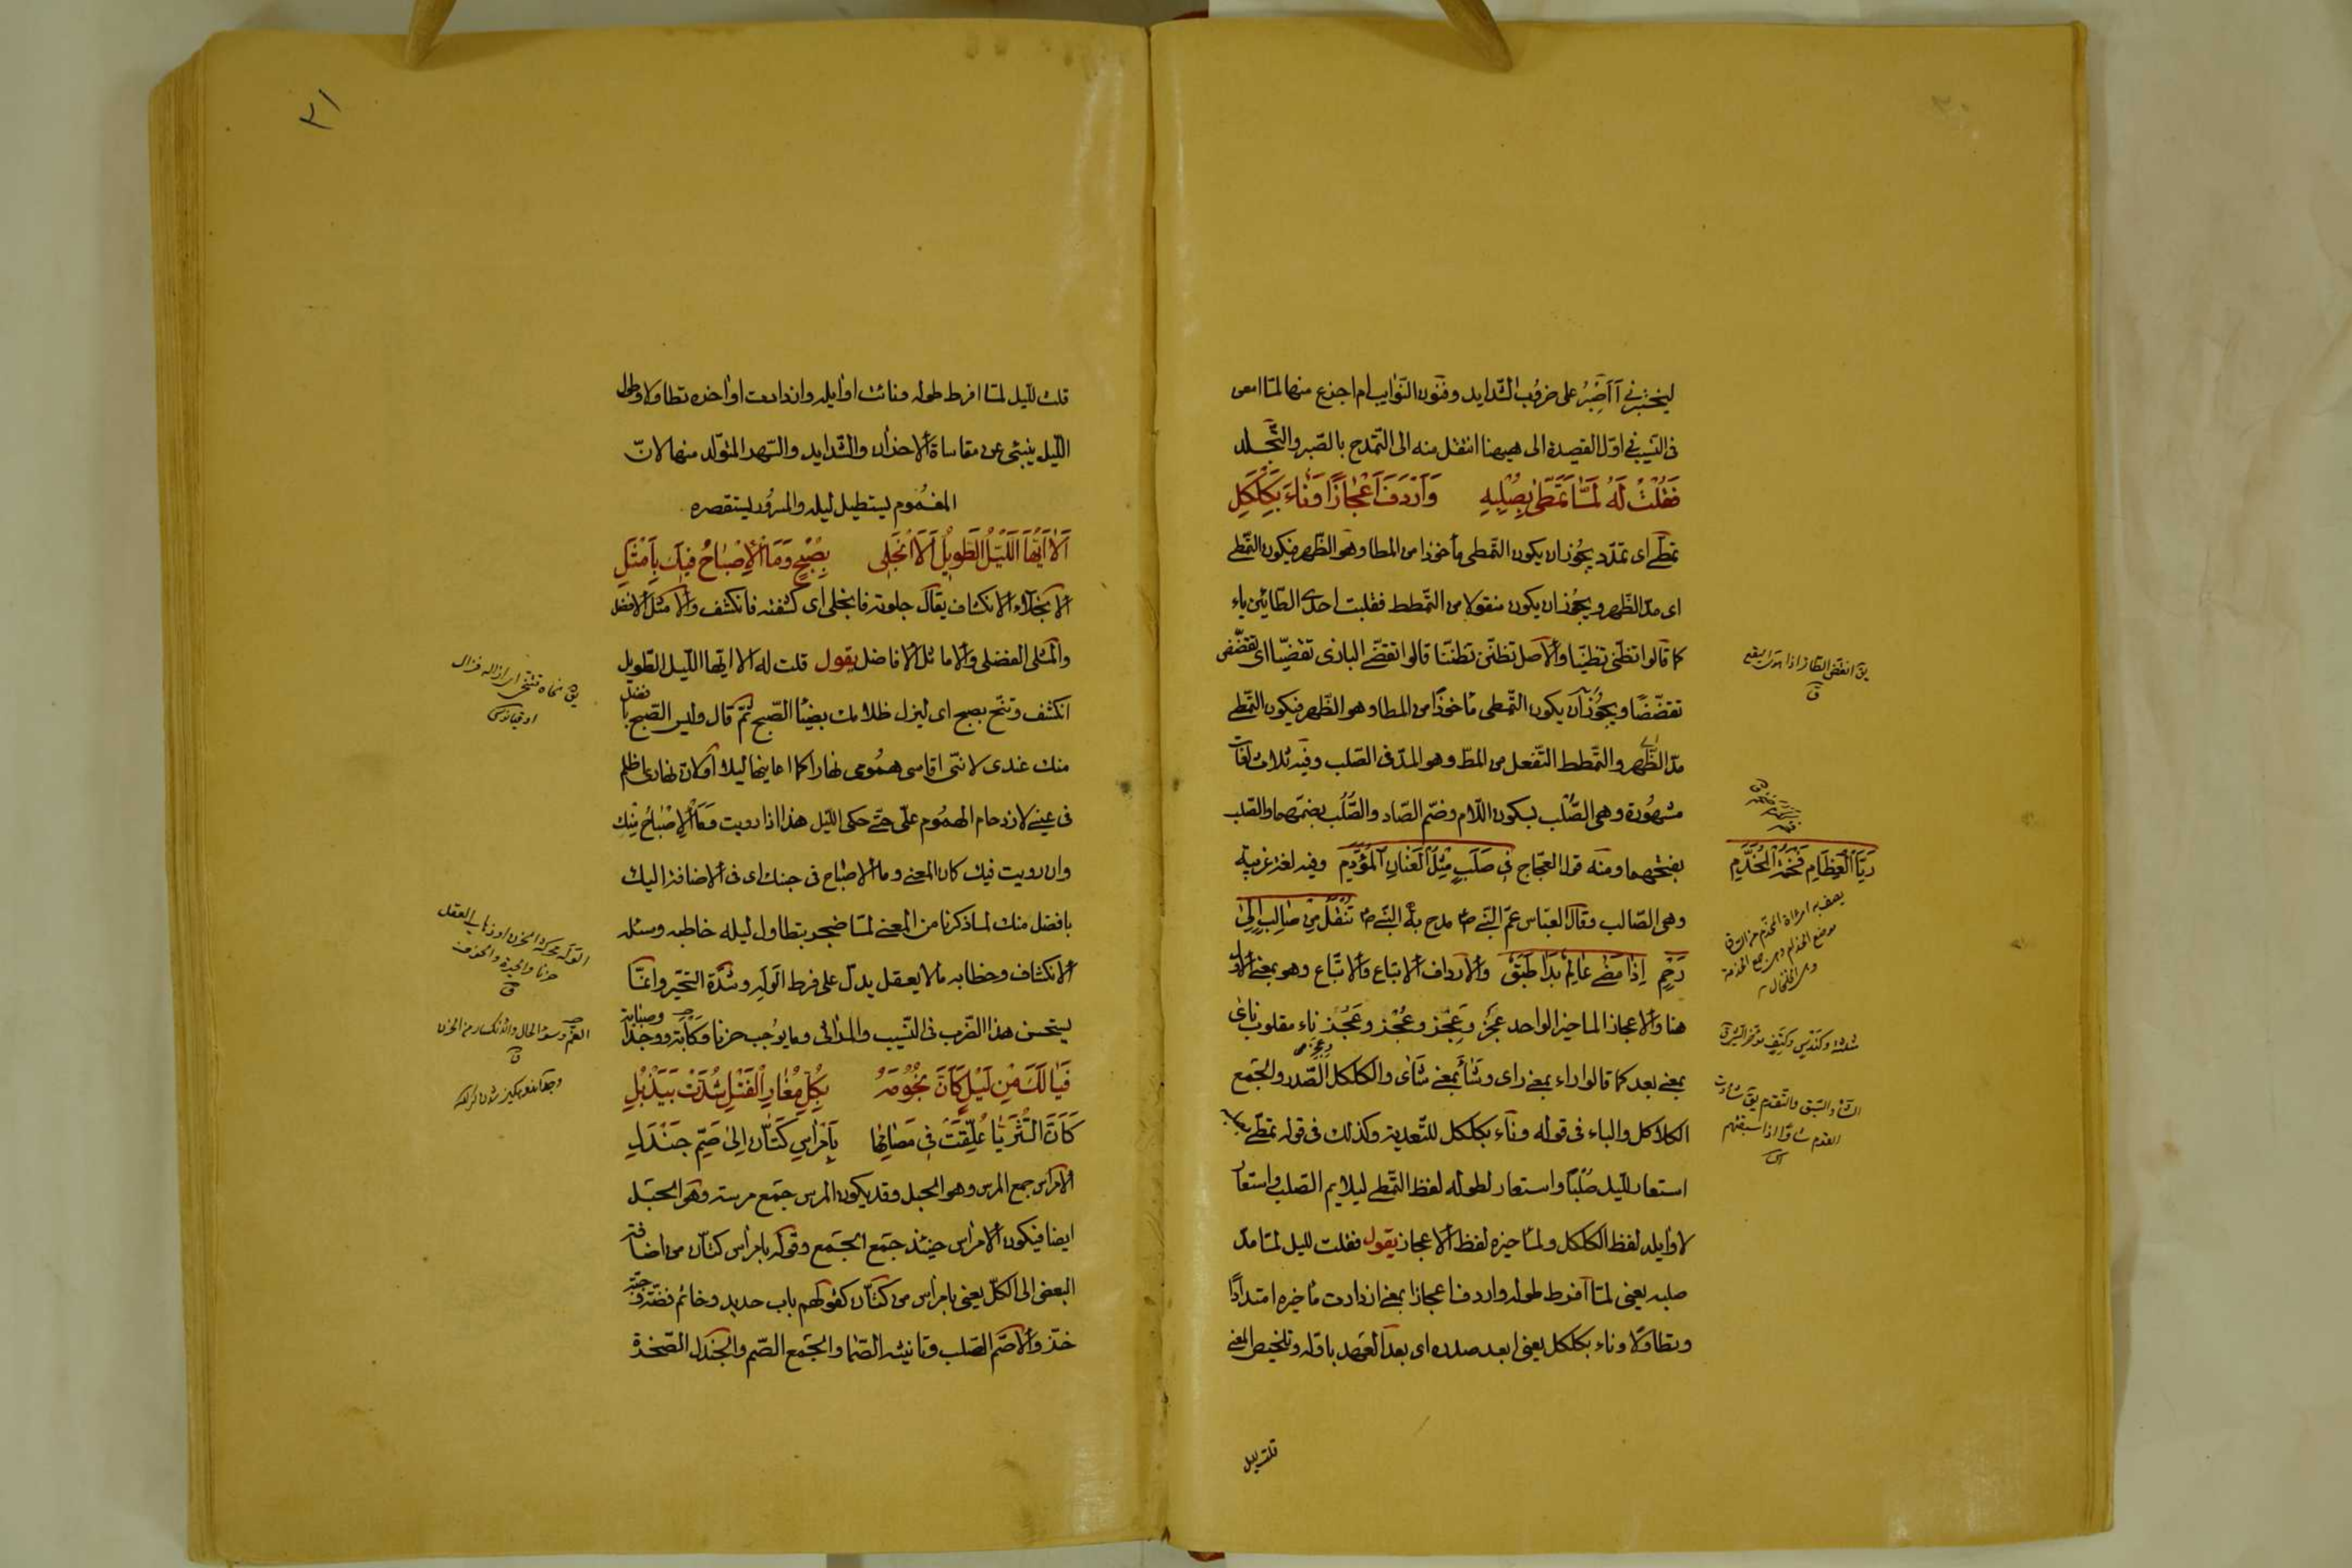 ليختبرني أأصبر على ضروب الشدايد وفنون النوايب ام اجزع منها لما امعن
في النسيب في اول القصيدة الى هيهنا انتقل منه الى التمدح بالصبر والتجلد
فَقُلْتُ لَهُ لَمَّا تَمَطّىٰ بِصُلْبِهِ وَاَرْدَفَ اَعْجٰازًا وَنٰاءَ بِكَلْكَلِ
تمطى اى تمدد يجوز ان يكون التمطى مأخوذا من المطا وهو الظهر فيكون التمطى
اى مد الظهر ويجوز ان يكون منقولا من التمطط فقلبت احدى الطائين ياء
كما قالوا تظنى تظنيا والاصل تظنن تظننا قالوا تقضى البازى تقضيا اى تقضض
تقضضا ويجوز ان يكون التمطى مأخوذا من المطا وهو الظهر فيكون التمطى
مد الظهر والتمطط التفعل من المط وهو المد فى الصلب وفيه ثلاث لغات
مشهورة وهى الصُّلْب بسكون اللام وضم الصاد والصُّلُب بضمهما والصلب
بفتحهما ومنه قول العجاج فى صَلَبٍ مِثْلِ الْعِنٰانِ الْمُؤْدَمِ وفيه لغة غريبة
رَيّا الْعِظٰامِ فَخْمَةُ الْمُخَدَّمِ
وهى الصالب وقال العباس عم النبى ص مدح به النبى ص تُنْقَلُ مِنْ صٰالِبٍ اِلىٰ
رَحِمٍ اِذٰا مَضىٰ عٰالَمٌ بَدٰا طَبَقٌ والارداف الاتباع والاتباع وهو بمعنى الاول
هنا والاعجاز المآخير الواحد عجز وعجز وعجز وعجز ناء مقلوب نأى
بمعنى بعد كما قالوا راء بمعنى راى وشاء بمعنى شأى والكلكل الصدر والجمع
الكلاكل والباء فى قوله وناء بكلكل للتعدية وكذلك فى قوله تمطى بصلبه
استعار لليل صلبا واستعار لطوله لفظ التمطى ليلايم الصلب واستعار
لاوايله لفظ الكلكل ولمآخيره لفظ الاعجاز يقول فقلت لليل لما مد
صلبه يعنى لما افرط طوله واردف اعجازا بمعنى ازدادت مآخيره امتدادا
وتطاولا وناء بكلكل يعنى ابعد صدره اى بعد العهد باوله وتلخيص المعنى
قلت لليل
٣١
قلت لليل لما افرط طوله ونائت اوايله وازدادت اواخره تطاولا وطول
الليل ينبئ عن مقاساة الاحزان والشدايد والسهد المتولد منها لان
المغموم يستطيل ليله والمسرور يستقصره
اَلاٰ اَيُّهَا اللَّيْلُ الطَّوِيْلُ اَلاَ انْجَلِى بِصُبْحٍ وَمَا الْاِصْبٰاحُ فِيْكَ بِاَمْثَلِ
الانجلاء الانكشاف يقال جلوته فانجلى اى كشفته فانكشف والامثل الافضل
والمثلى الفضلى والاماثل الافاضل يقول قلت له الا ايها الليل الطويل
انكشف وتنح بصبح اى ليزل ظلامك بضياء الصبح ثم قال وليس الصبح بافضل
منك عندى لاننى اقاسى همومى نهارا كما اعاينها ليلا او لان نهارى اظلم
فى عينى لازدحام الهموم على حتى حكى الليل هذا اذا رويت وَمَا الْاِصْبٰاحُ مِنْكَ
وان رويت فيك كان المعنى وما الاصباح فى جنبك اى فى الاضافة اليك
بافضل منك لما ذكرنا من المعنى لما ضجر بتطاول ليله خاطبه وسئله
الانكشاف وخطابه مالا يعقل يدل على فرط الوله وشدة التحير وانما
يستحسن هذا الضرب فى النسيب والمراثى وما يوجب حزنا وكآبة ووجدا وصبابة
فَيٰالَكَ مِنْ لَيْلٍ كَاَنَّ نُجُوْمَهُ بِكُلِّ مُغٰارِ الْفَتْلِ شُدَّتْ بِيَذْبُلِ
كَاَنَّ الثُّرَيّٰا عُلِّقَتْ فِى مَصٰامِهٰا بِاَمْرٰاسِ كَتّٰانٍ اِلىٰ صُمِّ جَنْدَلِ
الامراس جمع المرس وهو الحبل وقد يكون المرس جمع مرسة وهو الحبل
ايضا فيكون الامراس حينئذ جمع الجمع وقوله بامراس كتان من اضافة
البعض الى الكل يعنى بامراس من كتان كقولهم باب حديد وخاتم فضة وجبة
خز والاصم الصلب وتانيثه الصماء والجمع الصم والجندل الصخرة